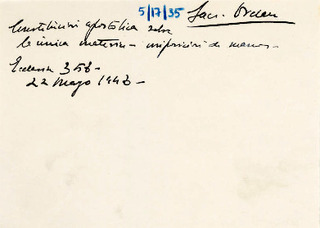 5/17/35 Sac. Orden
Constitución apostólica sobre
la única materia - imposición de manos -
Ecclesia 358 -
22 Mayo 1948 -